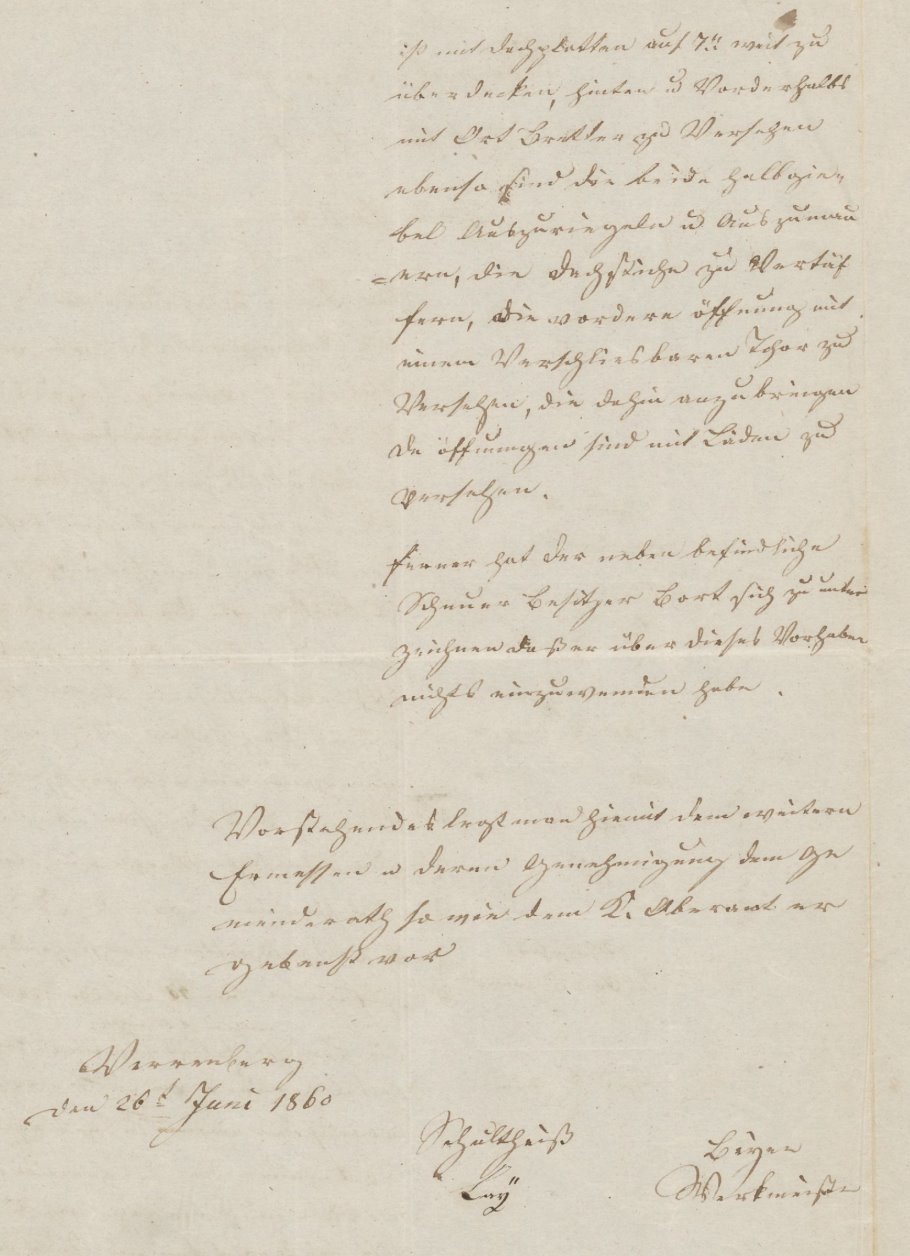 ist mit Dachplatten auf 7" weit zu
überdecken, hinten u Vorderhalbs
mit Ort Bretter zu Versehen
ebenso sind die beide Halbgie-
bel Auszuriegeln u Auszumau
=ern, die Dachstiche zu Vertäf
fern, die vordere öffnung mit
einem Verschliesbaren Thor zu
Versehen, die dahin anzubringen
de öffnungen sind mit Läden zu
versehen.
ferner hat der neben befindliche
Scheuer Besitzer Bort sich zu unter
zeichnen daß er über dieses Vorhaben
nichts einzuwenden habe.
Vorstehendes legt man hiemit dem weitern
Ermessen u deren Genehmigung dem Ge
meinderath so wie dem K. Oberamt er
gebenst vor
Verrenberg
den 26t Juni 1860
Schultheiß
Beyer
Laÿ
Werkmeister